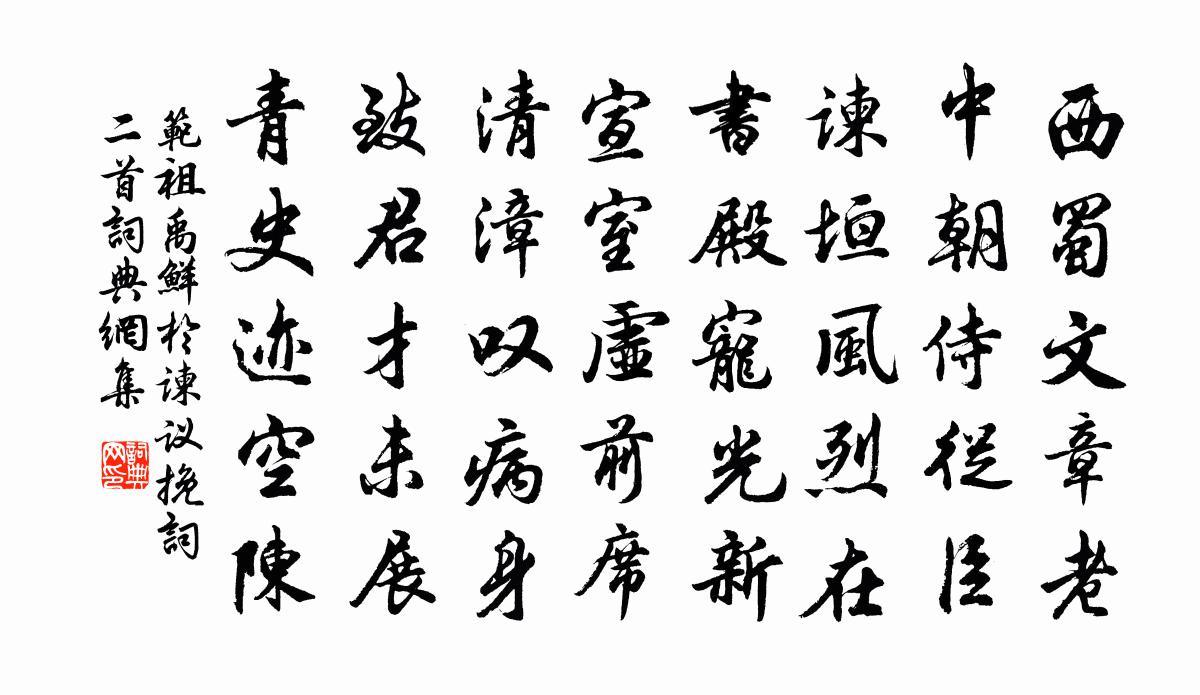 西蜀文章老
中朝侍從臣
諫垣風烈在
書殿寵光新
宣室虛前席
清漳叹病身
致君才未展
青史迹空陳
範祖禹鮮於諫议挽詞
二首詞典網集
詞典
网印